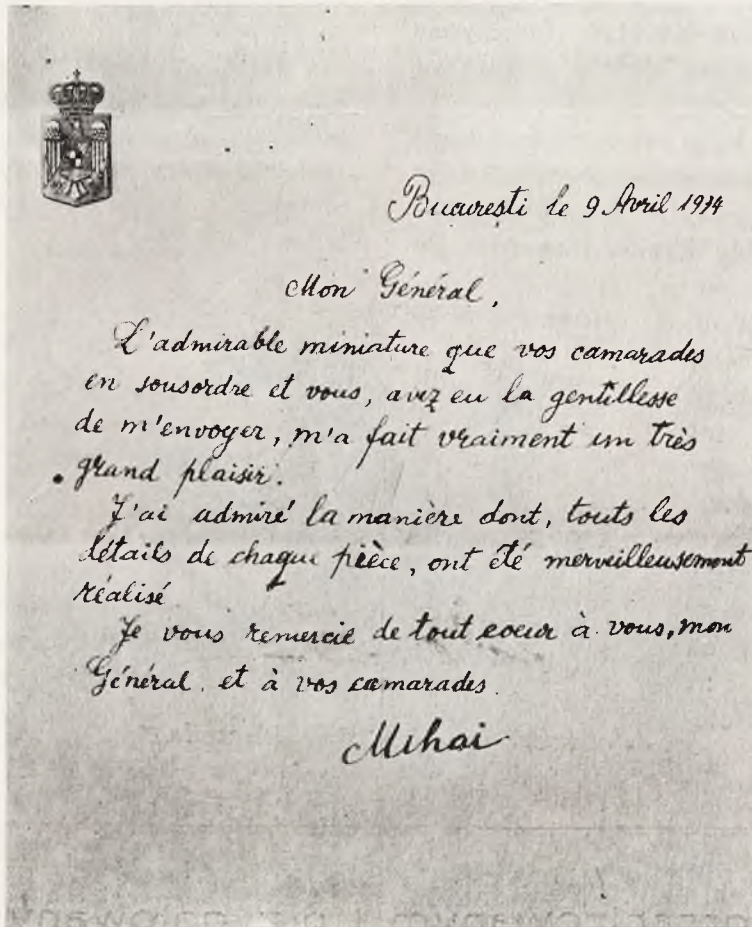 Bucuresti le 9 Avril 1934
Mon Général,
L'admirable miniature que vos camarades
en sousordre et vous, avez eu la gentillesse
de m'envoyer, m'a fait vraiment un très
grand plaisir.
J'ai admiré la manière dont, touts les
détails de chaque pièce, ont été merveilleusement
réalisé
Je vous remercie de tout coeur à vous, mon
Général, et à vos camarades.
Mihai